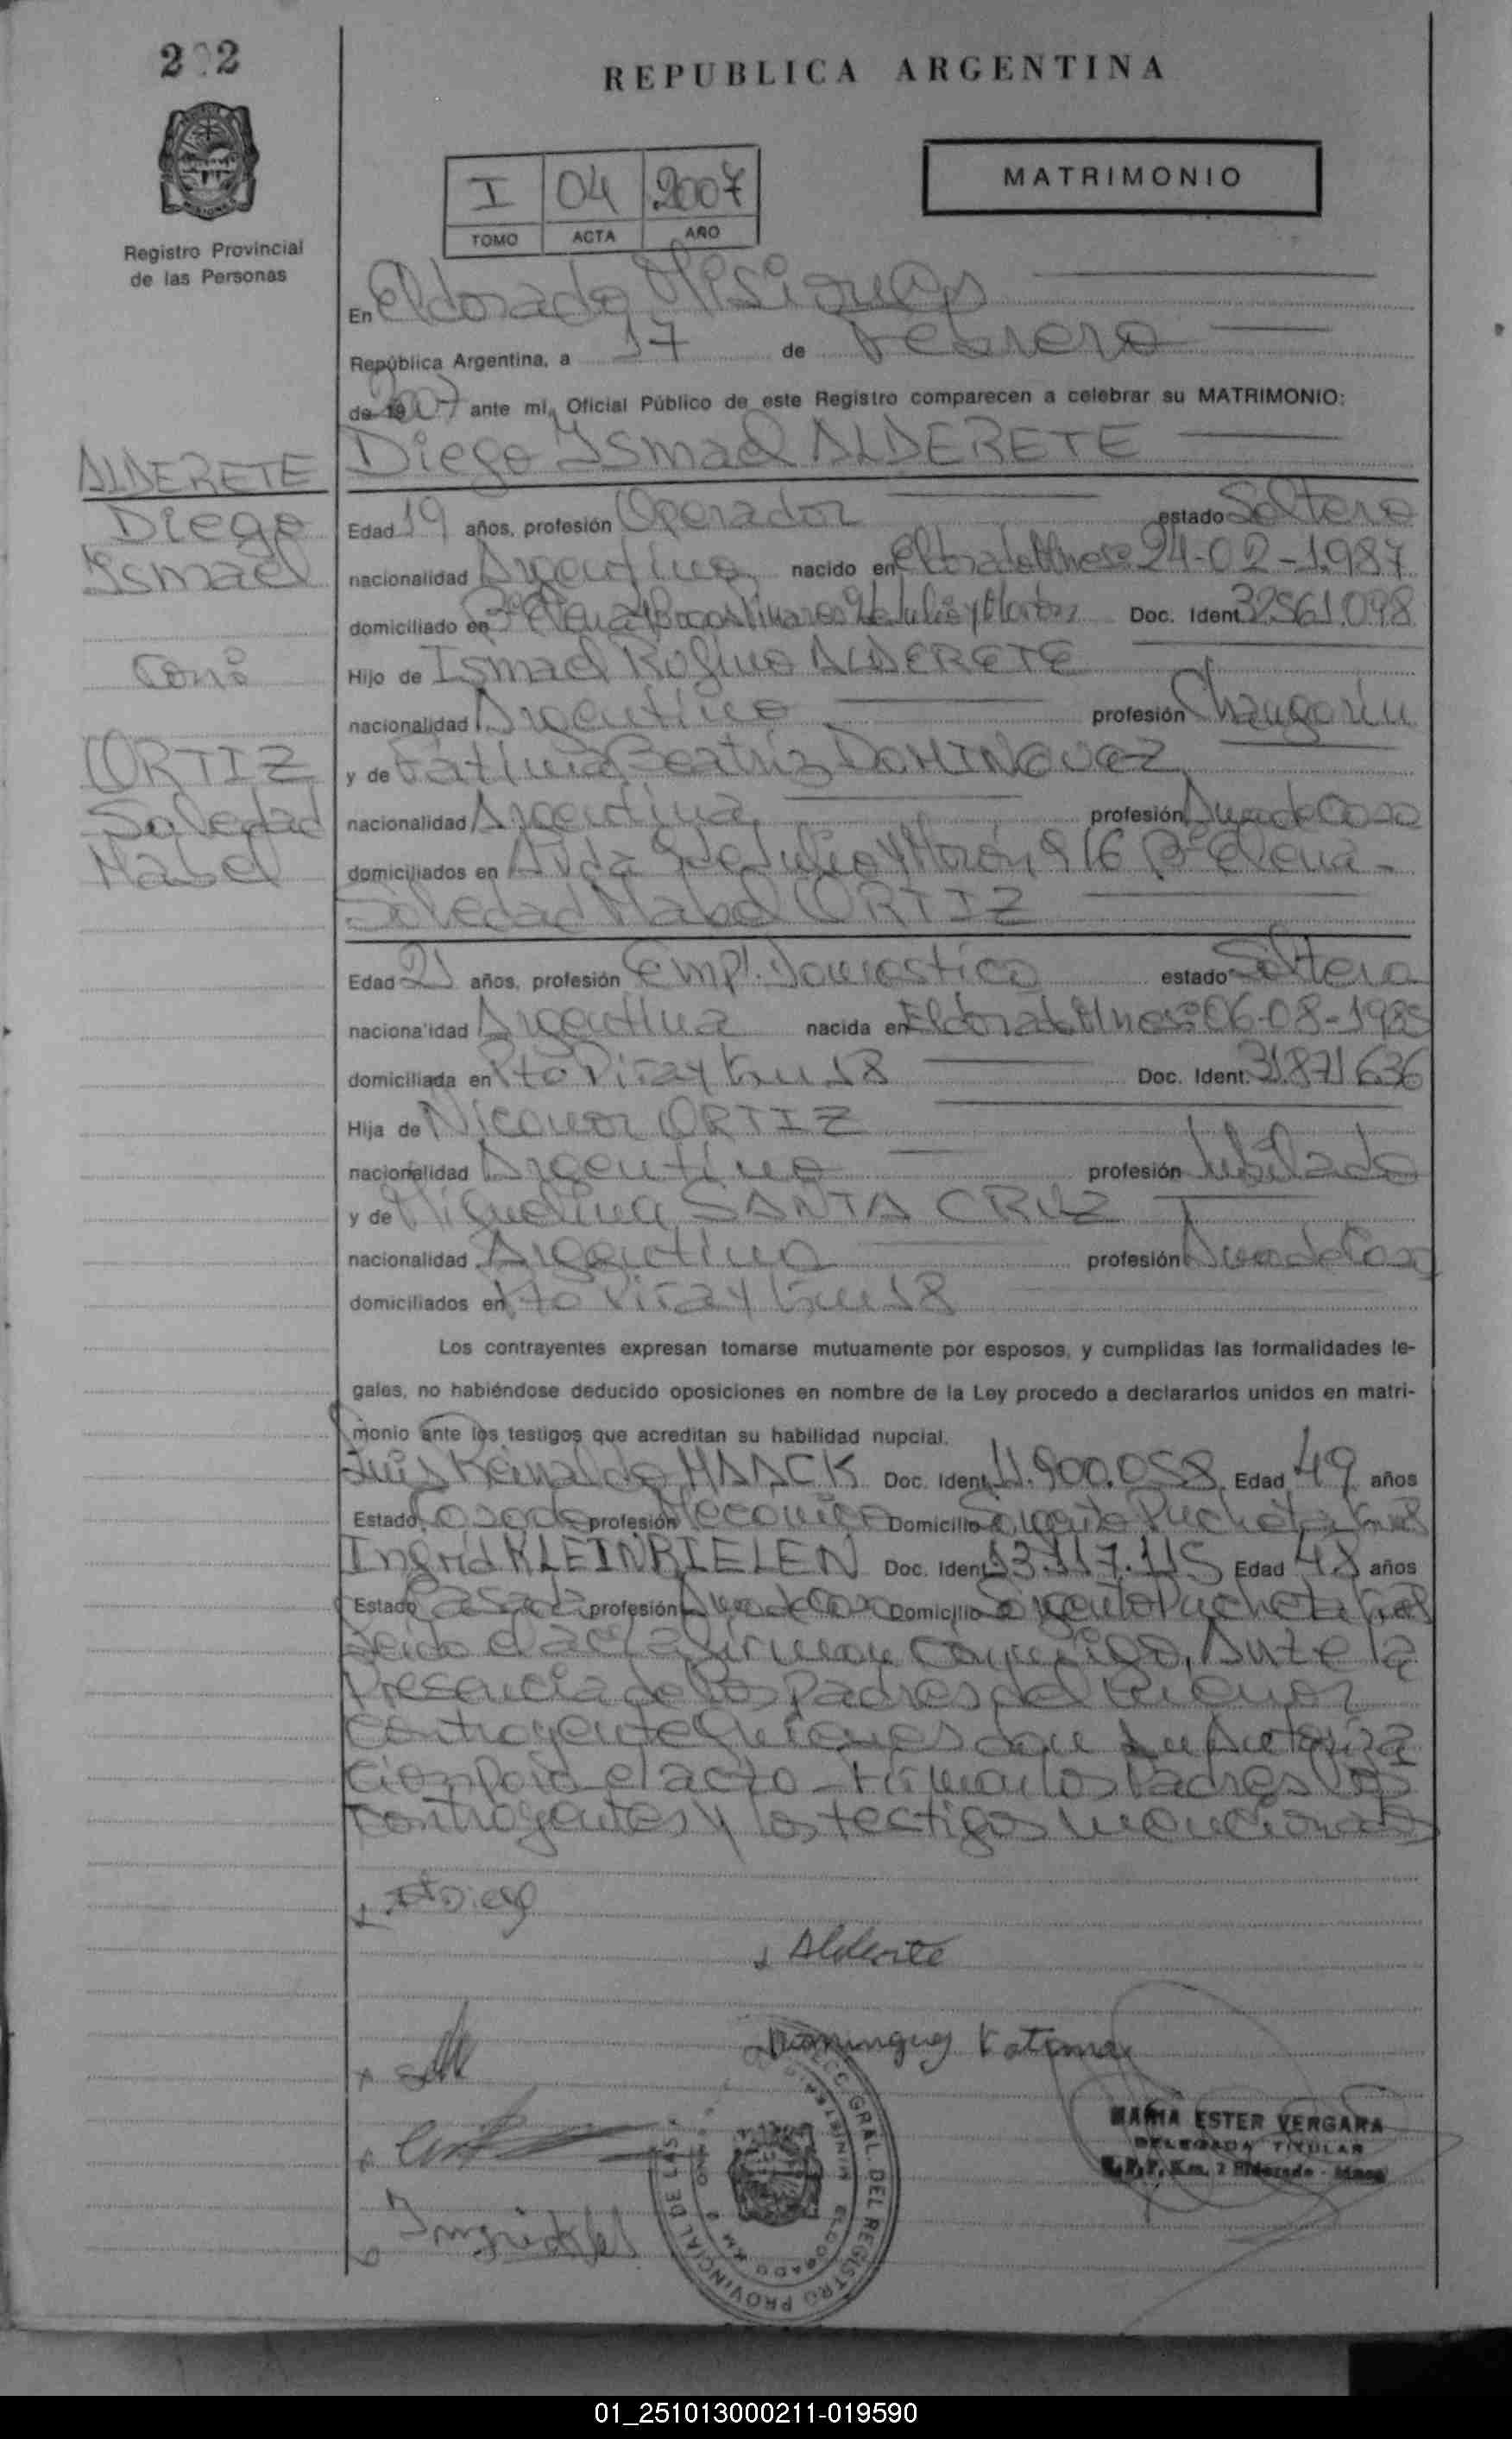 202
REPUBLICA ARGENTINA
MATRIMONIO
I 04 2007
TOMO ACTA AÑO
Registro Provincial
de las Personas
En Eldorado Misiones
República Argentina, a 17 de Febrero
de 19 2007 ante mí, Oficial Público de este Registro comparecen a celebrar su MATRIMONIO:
Diego Ismael ALDERETE
ALDERETE
Diego
Ismael
Con:
ORTIZ
Soledad
Mabel
Edad 19 años, profesión Operador estado Soltero
nacionalidad Argentino nacido en Eldorado Mnes: 24-02-1987
domiciliado en Bº Elena 9 de Julio y Morón Doc. Ident. 32561.098
Hijo de Ismael Rufino ALDERETE
nacionalidad Argentino profesión Changarín
y de Fatima Beatriz DOMINGUEZ
nacionalidad Argentina profesión Ama de Casa
domiciliados en Avda 9 de Julio y Morón 916 Bº Elena -
Soledad Mabel ORTIZ
Edad 21 años, profesión Empl. Domestico estado Soltera
nacionalidad Argentina nacida en Eldorado Mnes: 06-08-1985
domiciliada en Pto Piray Km 18 Doc. Ident. 31.871636
Hija de Nicanor ORTIZ
nacionalidad Argentino profesión Jubilado
y de Miguelina SANTA CRUZ
nacionalidad Argentina profesión Ama de Casa
domiciliados en Pto Piray Km 18
Los contrayentes expresan tomarse mutuamente por esposos, y cumplidas las formalidades le-
gales, no habiéndose deducido oposiciones en nombre de la Ley procedo a declararlos unidos en matri-
monio ante los testigos que acreditan su habilidad nupcial.
Luis Reinaldo HAACK Doc. Ident. 11.900.058 Edad 49 años
Estado Casado profesión Mecanico Domicilio Sargento Pucheta
Ingrid KLEINBIELEN Doc. Ident. 13.117.115 Edad 48 años
Estado Casada profesión Ama de Casa Domicilio Sargento Pucheta
Leido el acta firman conmigo, Ante la
Presencia de los Padres del menor
contrayente quienes dan su Autoriza
cion para el acto - Firman los Padres los
contrayentes y los testigos mencionados
Diego
Alderete
Dominguez Fatima
MARIA ESTER VERGARA
DELEGADA TITULAR
R.P.P. Km. 2 Eldorado - Mnes
GRAL. DEL REGISTRO PROVINCIAL DE LAS
ELDORADO KM
01_251013000211-019590